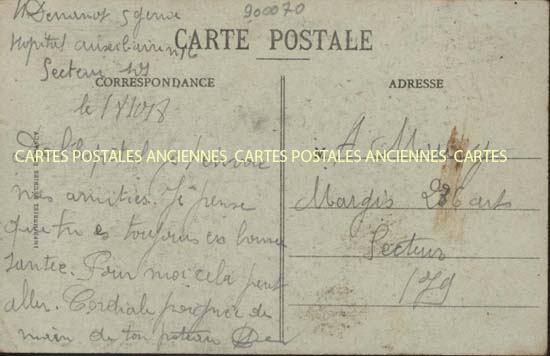 900070
Hopital auxiliaire
Secteur
CARTE POSTALE
CORRESPONDANCE
ADRESSE
le
De l'hopital j'envoie
mes amitiés. Je pense
que tu es toujours en bonne
santée. Pour moi cela peut
aller. Cordiale poignée de
main de ton poteau
A M
Margis Carts
Secteur
179
CARTES POSTALES ANCIENNES CARTES POSTALES ANCIENNES CARTES
IMPRIMERIES